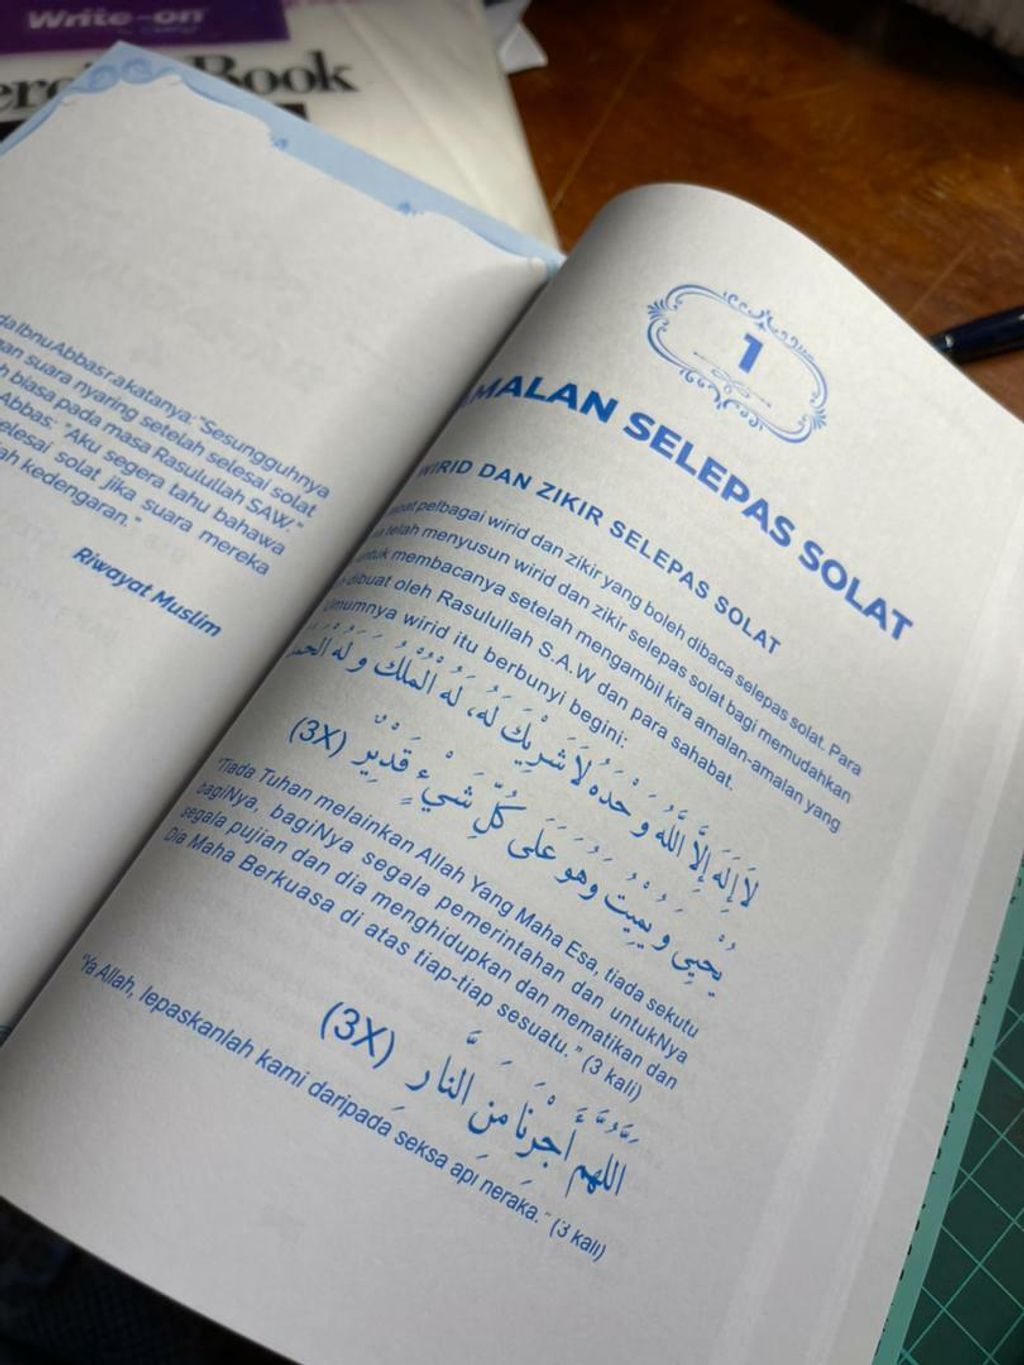 Write-on
Book
Ibnu Abbas r.a katanya: "Sesungguhnya
suara nyaring setelah selesai solat
biasa pada masa Rasulullah SAW."
Abbas: "Aku segera tahu bahawa
selesai solat jika suara mereka
kedengaran."
Riwayat Muslim
1
AMALAN SELEPAS SOLAT
WIRID DAN ZIKIR SELEPAS SOLAT
pelbagai wirid dan zikir yang boleh dibaca selepas solat. Para
telah menyusun wirid dan zikir selepas solat bagi memudahkan
membacanya setelah mengambil kira amalan-amalan yang
dibuat oleh Rasulullah S.A.W dan para sahabat.
Umumnya wirid itu berbunyi begini:
لَا إِلَهَ إِلَّا اللَّهُ وَحْدَهُ لَا شَرِيْكَ لَهُ، لَهُ الْمُلْكُ وَلَهُ
يُحْيِي وَيُمِيْتُ وَهُوَ عَلَى كُلِّ شَيْءٍ قَدْيِرٌ (3X)
"Tiada Tuhan melainkan Allah Yang Maha Esa, tiada sekutu
bagiNya, bagiNya segala pemerintahan dan untukNya
segala pujian dan dia menghidupkan dan mematikan dan
Dia Maha Berkuasa di atas tiap-tiap sesuatu." (3 kali)
اللَّهُمَّ أَجِرْنَا مِنَ النَّارِ (3X)
"Ya Allah, lepaskanlah kami daripada seksa api neraka." (3 kali)